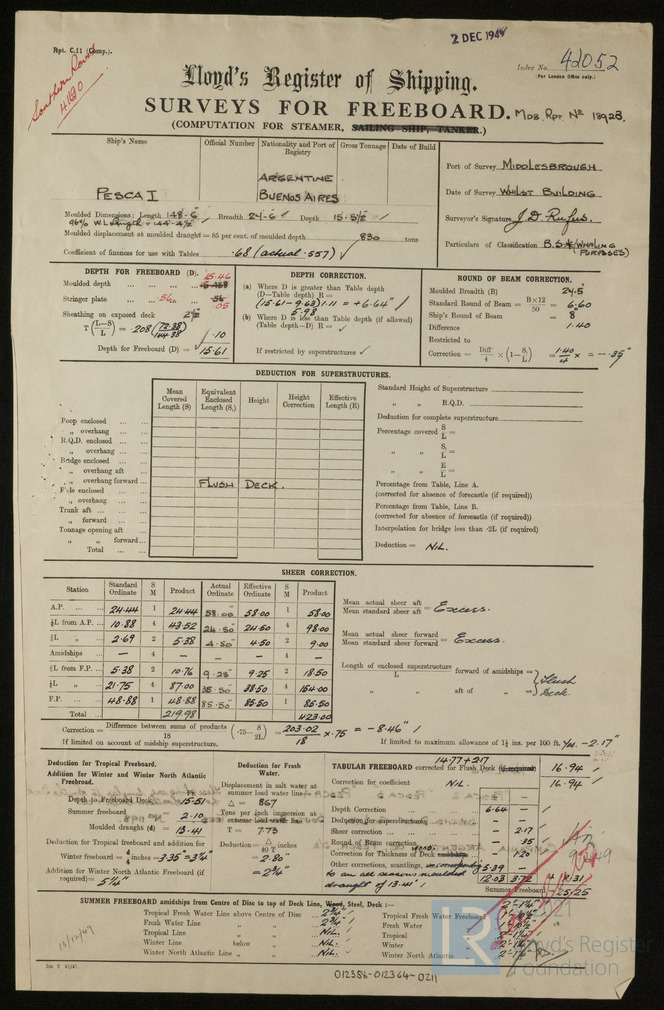 2 DEC 1948
Rpt. C.11 (Comp.).
Index No. 42052
(For London Office only.)
Lloyd's Register of Shipping.
SURVEYS FOR FREEBOARD. MDB. RPT. No 18928.
(COMPUTATION FOR STEAMER, SAILING SHIP, TANKER.)
Ship's Name
Official Number
Nationality and Port of Registry
Gross Tonnage
Date of Build
PESCA I
ARGENTINE
BUENOS AIRES
Port of Survey MIDDLESBROUGH
Date of Survey WHILST BUILDING
Surveyor's Signature J. D. Rufus.
Particulars of Classification B.S.* (WHALING PURPOSES)
Moulded Dimensions: Length 148-6 Breadth 24-6 Depth 15-5½
96% W.L. Length = 144-4½"
Moulded displacement at moulded draught = 85 per cent. of moulded depth 830 tons
Coefficient of fineness for use with Tables .68 (actual .557)
DEPTH FOR FREEBOARD (D).
Moulded depth 15.46
Stringer plate .05
Sheathing on exposed deck 2½"
T(L—S/L) = .208 (72.38/144.38) .10
Depth for Freeboard (D) = 15.61
DEPTH CORRECTION.
(a) Where D is greater than Table depth
(D—Table depth) R =
(15.61-9.63) 1.11 = + 6.64"
5.98
(b) Where D is less than Table depth (if allowed)
(Table depth—D) R =
If restricted by superstructures
ROUND OF BEAM CORRECTION.
Moulded Breadth (B) 24.5
Standard Round of Beam = B×12/50 = 6.60
Ship's Round of Beam = 8"
Difference 1.40
Restricted to
Correction = Diff/4 × (1—S₁/L) = 1.40/4 × = -.35"
DEDUCTION FOR SUPERSTRUCTURES.
Mean Covered Length (S)
Equivalent Enclosed Length (S₁)
Height
Height Correction
Effective Length (E)
Poop enclosed
„ overhang
R.Q.D. enclosed
„ overhang
Bridge enclosed
„ overhang aft
„ overhang forward
F'cle enclosed
„ overhang
Trunk aft
„ forward
Tonnage opening aft
„ „ forward
Total
FLUSH DECK.
Standard Height of Superstructure
„ „ R.Q.D.
Deduction for complete superstructure
Percentage covered S/L =
„ „ S₁/L =
„ „ E/L =
Percentage from Table, Line A.
(corrected for absence of forecastle (if required))
Percentage from Table, Line B.
(corrected for absence of forecastle (if required))
Interpolation for bridge less than ·2L (if required)
Deduction = NIL.
SHEER CORRECTION.
Station Standard Ordinate S M Product Actual Ordinate Effective Ordinate S M Product
A.P. 24.44 1 24.44 58.00" 58.00 1 58.00
⅙L from A.P. 10.88 4 43.52 24.50" 24.50 4 98.00
⅓L „ 2.69 2 5.38 4.50" 4.50 2 9.00
Amidships — 4 — — — 4 —
⅓L from F.P. 5.38 2 10.76 9.25" 9.25 2 18.50
⅙L „ 21.75 4 87.00 38.50" 38.50 4 154.00
F.P. 48.88 1 48.88 85.50" 85.50 1 85.50
Total 219.98 423.00
Mean actual sheer aft / Mean standard sheer aft = Excess.
Mean actual sheer forward / Mean standard sheer forward = Excess.
Length of enclosed superstructure / L forward of amidships =
„ aft of „ =
Flush Deck.
Correction = Difference between sums of products/18 (·75—S/2L) = 203.02/18 × .75 = -8.46"
If limited on account of midship superstructure.
If limited to maximum allowance of 1½ ins. per 100 ft. Yes. -2.17"
Deduction for Tropical Freeboard.
Addition for Winter and Winter North Atlantic Freeboard.
Depth to Freeboard Deck 15.51
Summer freeboard 2.10
Moulded draught (d) = 13.41
Deduction for Tropical freeboard and addition for
Winter freeboard = d/4 inches = 3.35 = 3¼"
Addition for Winter North Atlantic Freeboard (if required) = 5¼"
Deduction for Fresh Water.
Displacement in salt water at summer load water line
Δ = 867
Tons per inch immersion at summer load water line
T = 7.73
Deduction = Δ/40 T inches
= 2.80"
= 2¾"
14.77 + 2.17
TABULAR FREEBOARD corrected for Flush Deck (if required) 16.94
Correction for coefficient NIL. 16.94
Depth Correction 6.64 —
Deduction for superstructures — —
Sheer correction — 2.17
Round of Beam correction — .35
Correction for Thickness of Deck amidships — 1.20
Other corrections, scantlings, corresponding 5.39 —
to an all seasons moulded 12.03 3.72 + 8.31
draught of 13.41'
Summer Freeboard = 25.25
SUMMER FREEBOARD amidships from Centre of Disc to top of Deck Line, Wood, Steel, Deck:—
Tropical Fresh Water Line above Centre of Disc 2¾"
Fresh Water Line „ „ 2¾"
Tropical Line „ „ NIL.
Winter Line below „ NIL.
Winter North Atlantic Line „ „ NIL.
Tropical Fresh Water Freeboard
Fresh Water „
Tropical „
Winter „
Winter North Atlantic „
13/12/49
LR
Lloyd's Register
Foundation
012386-012364-0211